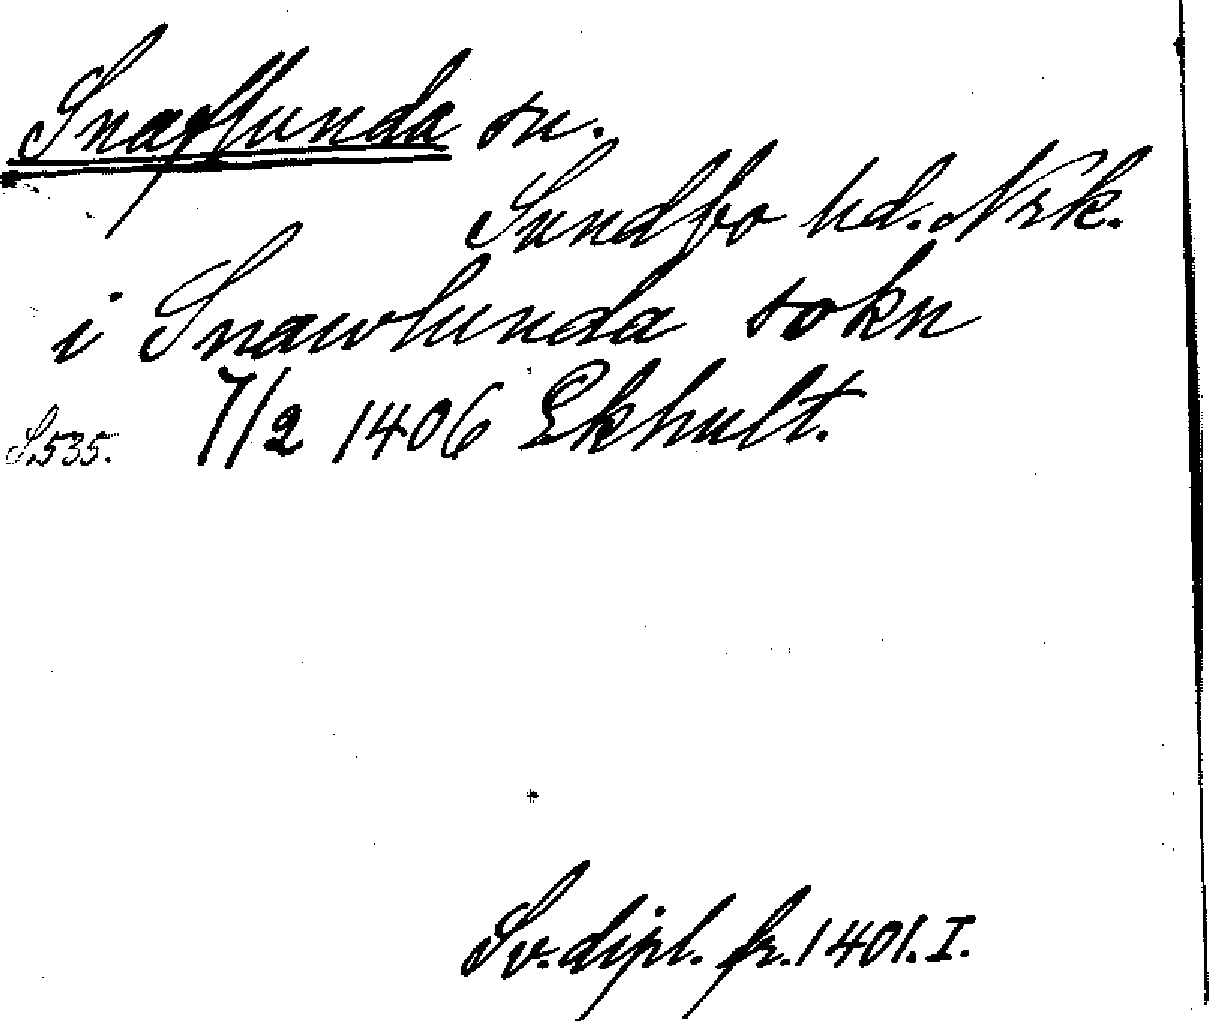 Snaflunda sn.
Sundbo hd. Nrk.
i Snawlunda sokn
S. 535. 7/2 1406 Ekhult.
Sv. dipl. fr. 1401. I.